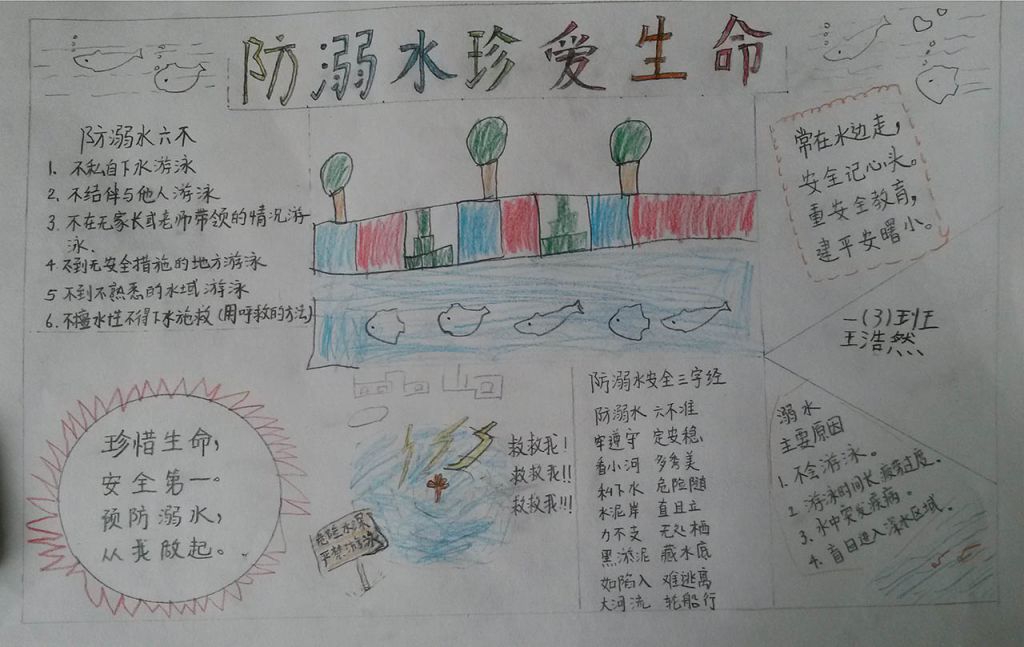 防溺水珍爱生命
防溺水六不
1. 不私自下水游泳
2. 不结伴与他人游泳
3. 不在无家长或老师带领的情况游
泳.
4. 不到无安全措施的地方游泳
5 不到不熟悉的水域游泳
6. 不擅水性不得下水施救(用呼救的方法)
常在水边走,
安全记心头。
重安全教育,
建平安曙小。
一(3)班
王浩然
珍惜生命,
安全第一。
预防溺水,
从我做起。
救救我!
救救我!!
救救我!!!
危险水深
严禁游泳
防溺水安全三字经
防溺水 六不准
牢遵守 定安稳
看小河 多秀美
私下水 危险随
水泥岸 直且立
力不支 无处栖
黑淤泥 藏水底
如陷入 难逃离
大河流 轮船行
溺水
主要原因
1. 不会游泳。
2 游泳时间长 疲劳过度.
3. 水中突发疾病。
4. 盲目进入深水区域.